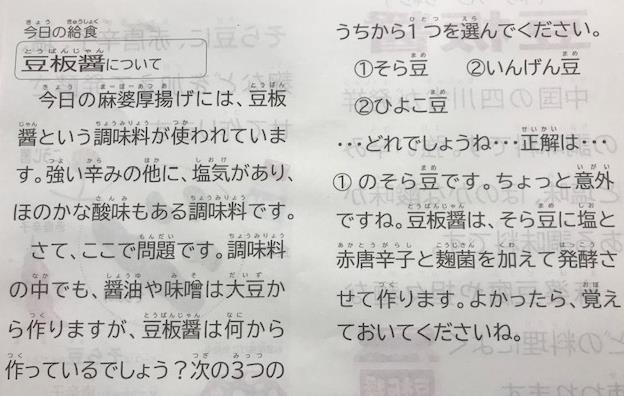 今日の給食
豆板醤について
今日の麻婆厚揚げには、豆板
醤という調味料が使われていま
す。強い辛みの他に、塩気があり、
ほのかな酸味もある調味料です。
さて、ここで問題です。調味料
の中でも、醤油や味噌は大豆か
ら作りますが、豆板醤は何から
作っているでしょう?次の3つの
うちから1つを選んでください。
①そら豆 ②いんげん豆
②ひよこ豆
・・・どれでしょうね・・・正解は・・・
①のそら豆です。ちょっと意外
ですね。豆板醤は、そら豆に塩と
赤唐辛子と麹菌を加えて発酵さ
せて作ります。よかったら、覚え
ておいてくださいね。